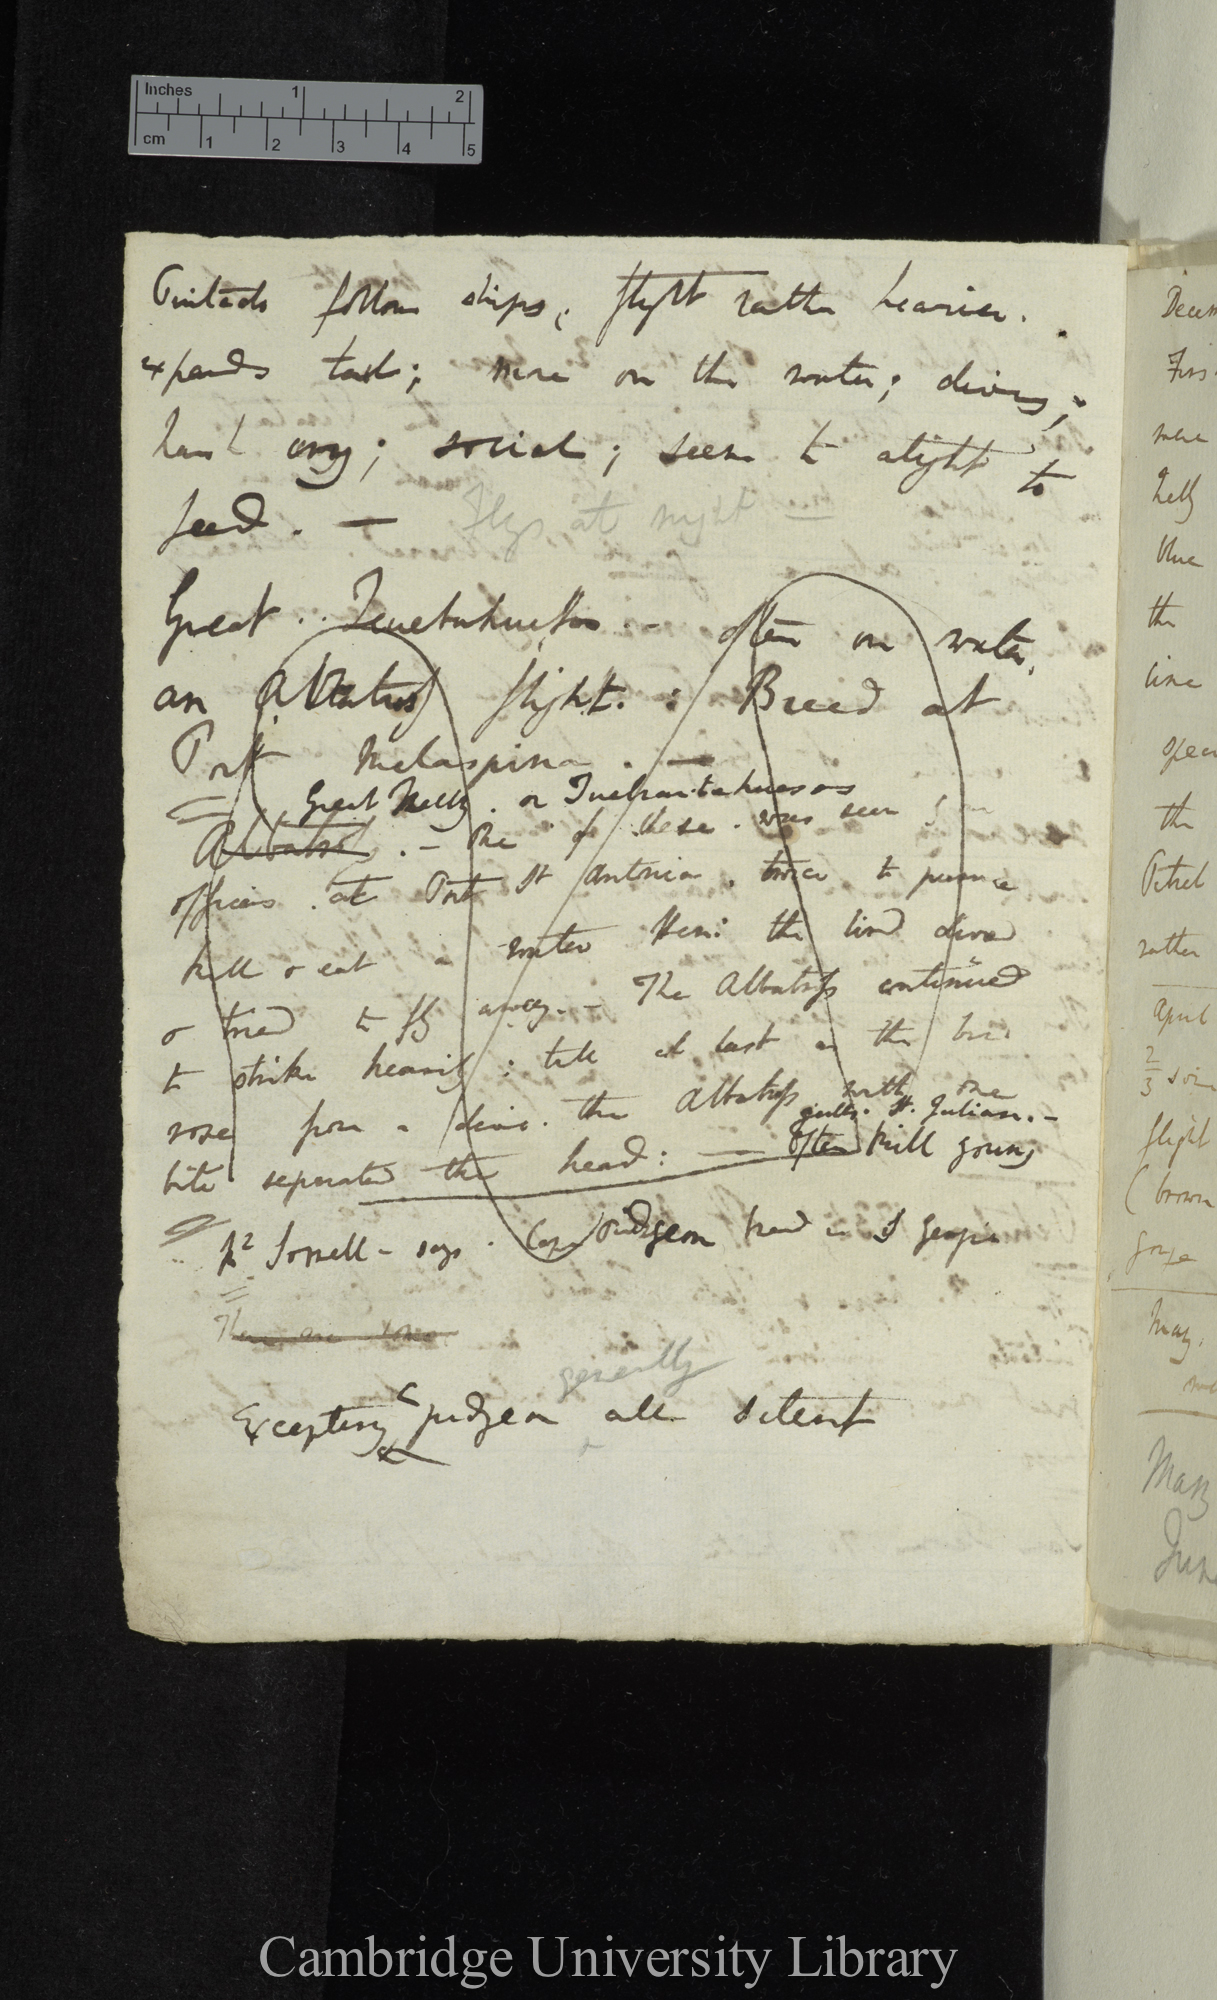 Inches 1 2
cm 1 2 3 4 5
Pintado follow ships, flight rather heavier.
expands tail; more on the water; diving;
harsh cry; social; seem to alight to
feed. — Flys at night —
Great . . Quebrahuessos . — often on water,
an Albatross flight. : Breed at
Port Malaspina . —
Great Nelly . or Quebrantahuessos
Albatross . — One of these . was seen
officers . at Port St Antonio . twice to pursue
kill & eat a water Hen: the bird dived
& tried to fly away. — The Albatross continued
to strike heavily : till at last as the bird
rose from a dive . the Albatross with one
gulls. St. Julian. —
bite separated the head: — Often kill young
Sorrell — says . Cape Pidgeon breed in S Georgia
There are some
generally
Excepting C pidgeon all silent
Decem
Firs
were
Nelly
blue
the
line
the
Petrel
rather
April
2/3
flight
( brown
gorge
May.
May
June
Cambridge University Library